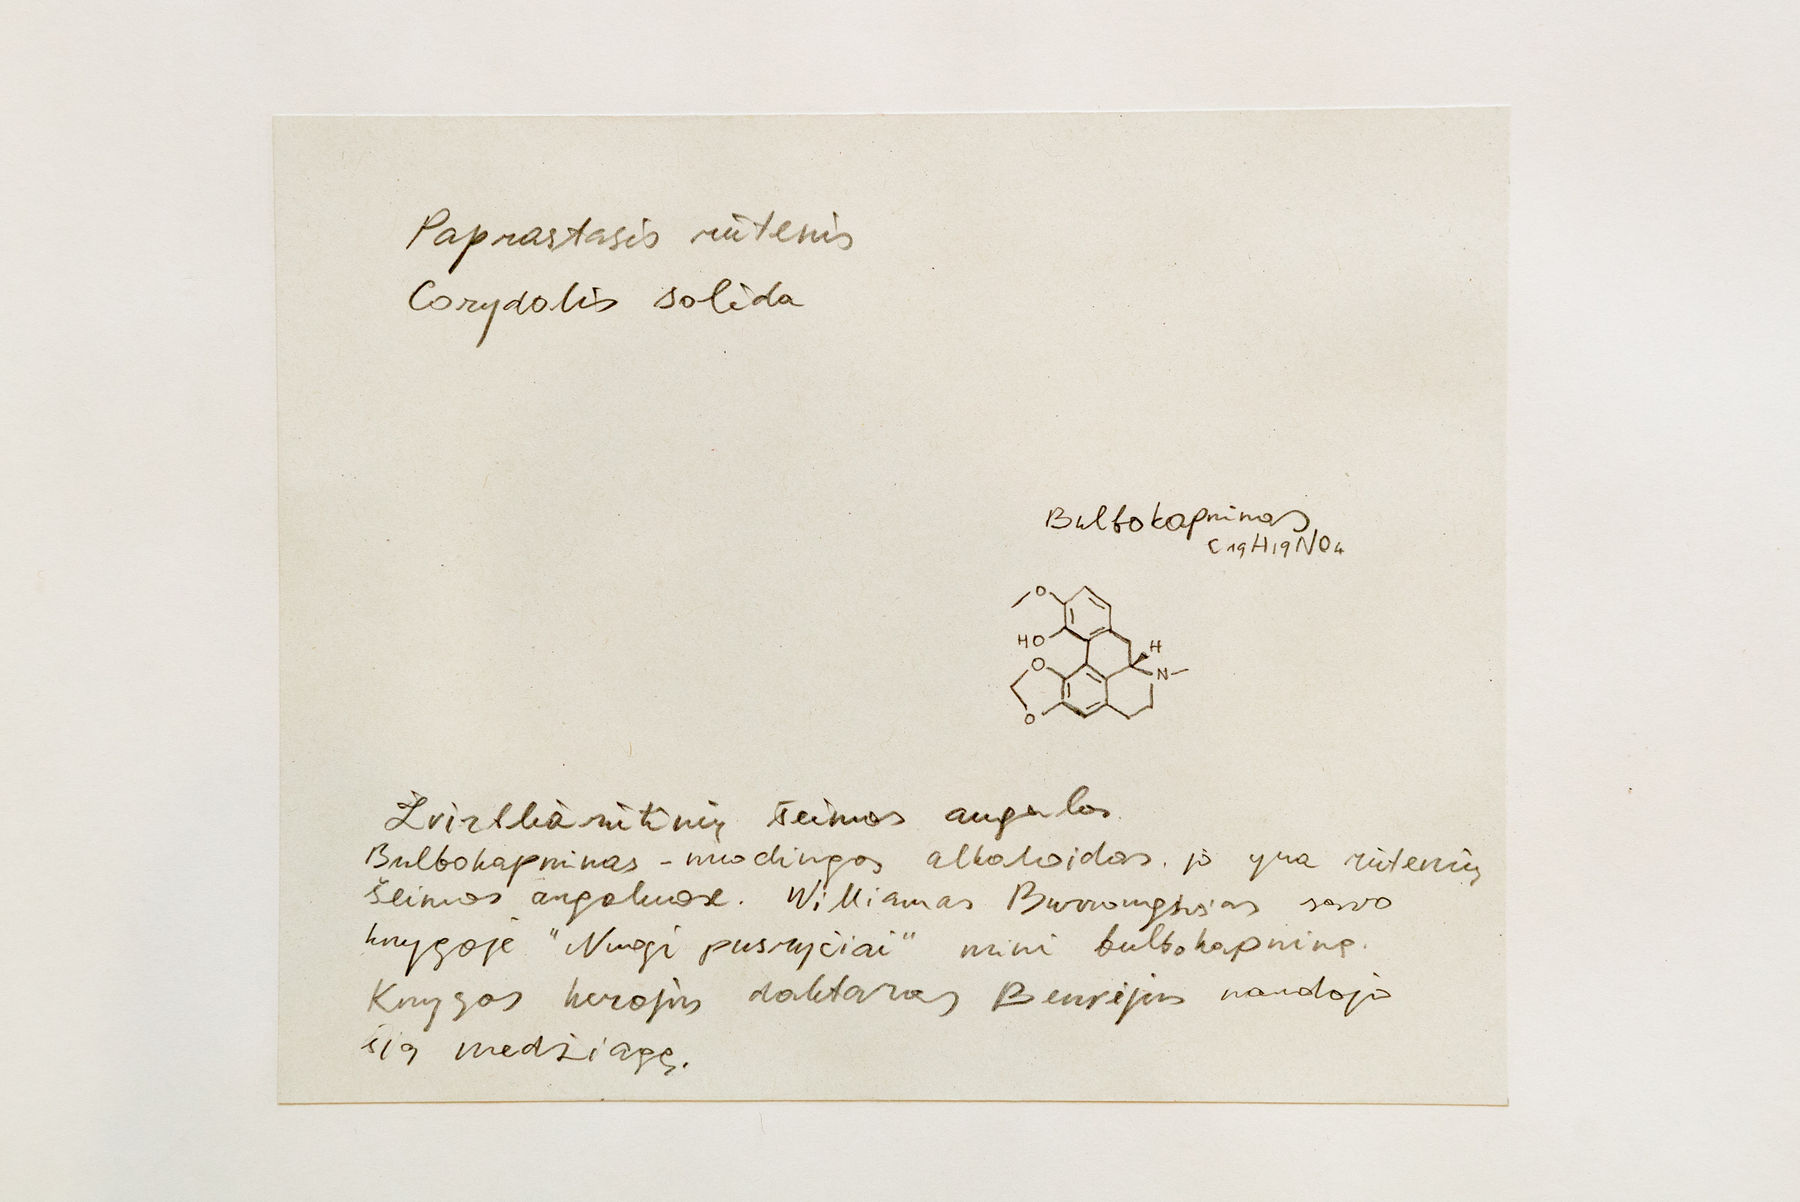 Paprastasis rūtenis
Corydalis solida
Bulbokapninas
C19H19NO4
O
HO
H
O
N
O
šeimos augalas
Bulbokapninas - nuodingas alkaloidas. jo yra rūtenių
šeimos augaluose. Williamas Burroughsas savo
knygoje "Nuogi pusryčiai" mini bulbokapniną.
Knygos herojus daktaras Benvejus naudojo
šią medžiagą.